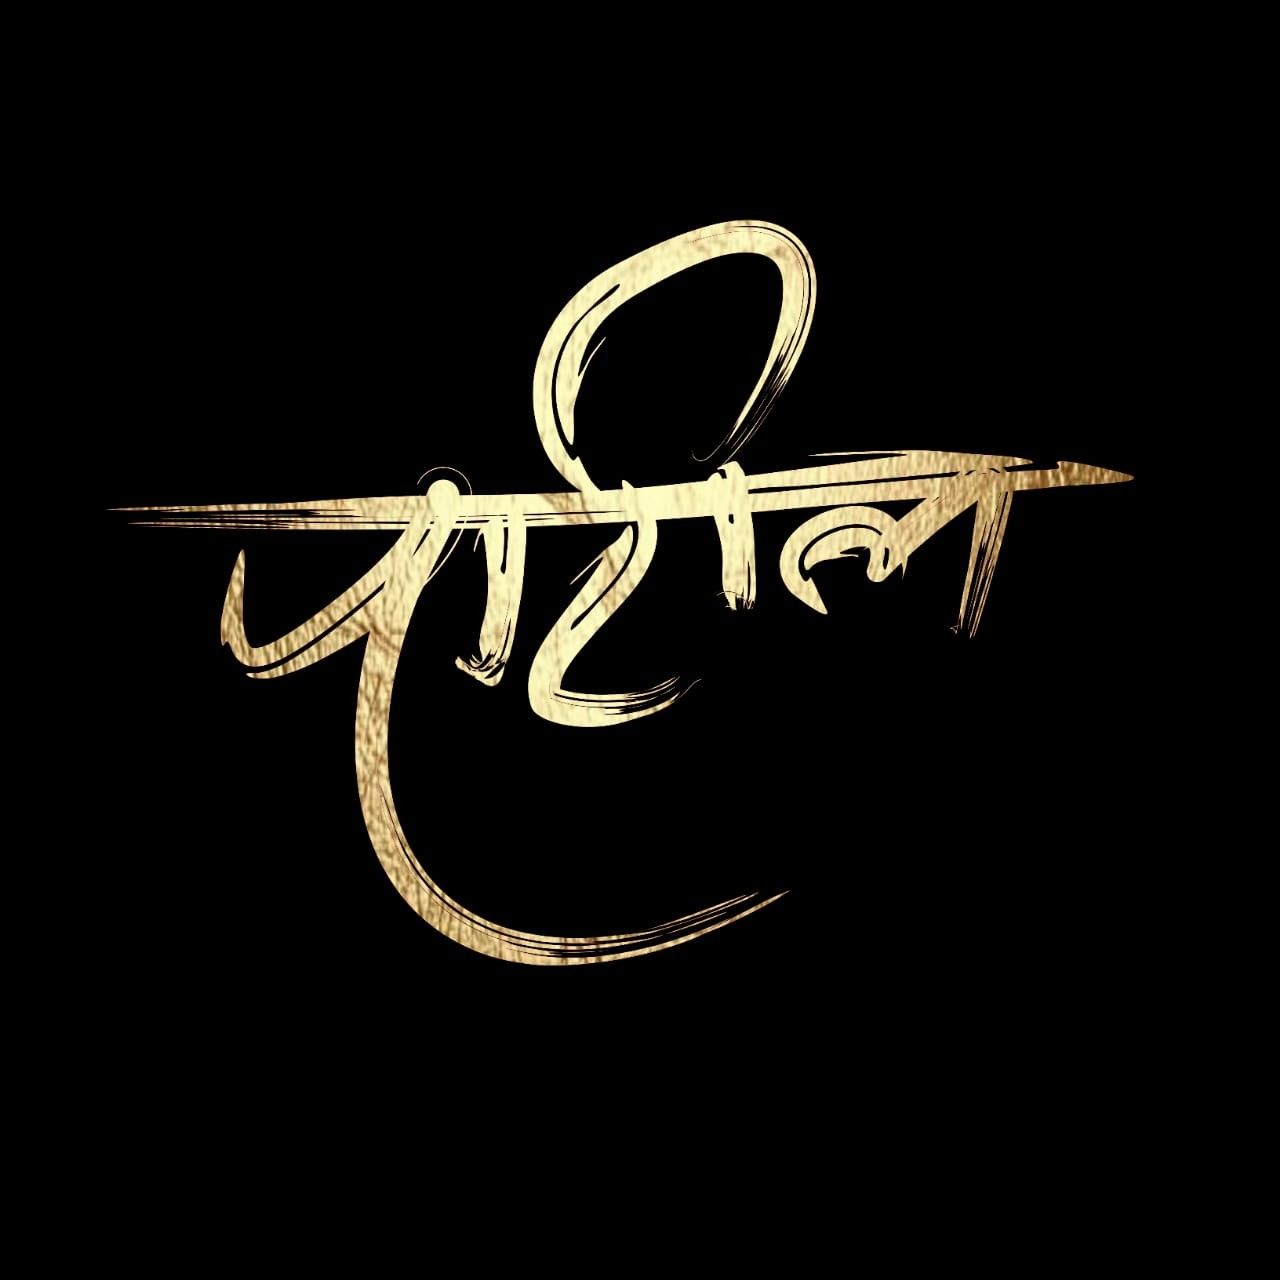 पाटील